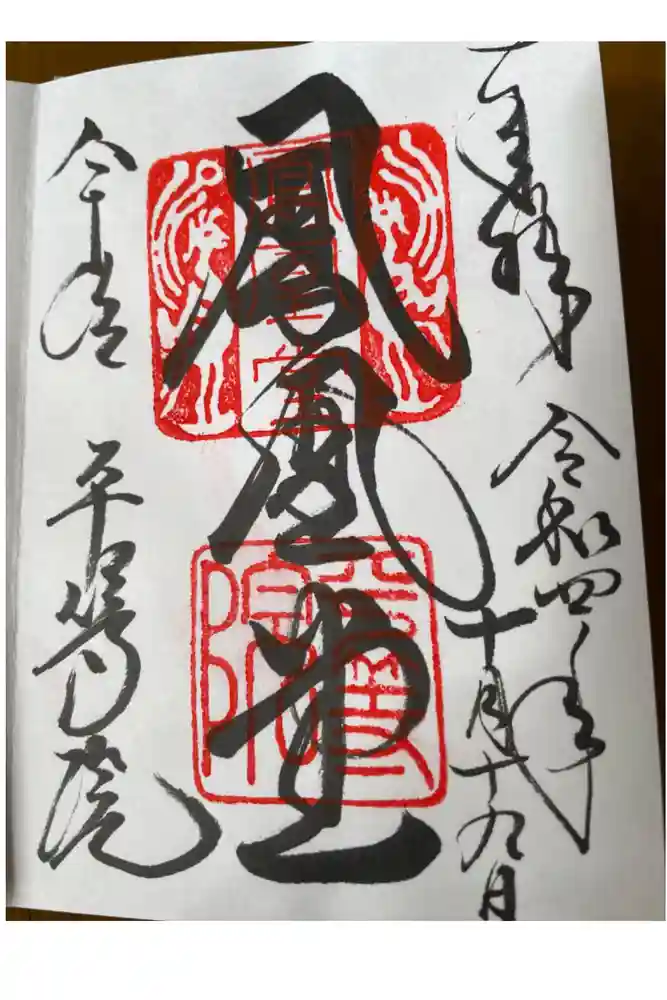 奉拝
令和四年
十月十九日
鳳凰堂
宇治
平等院